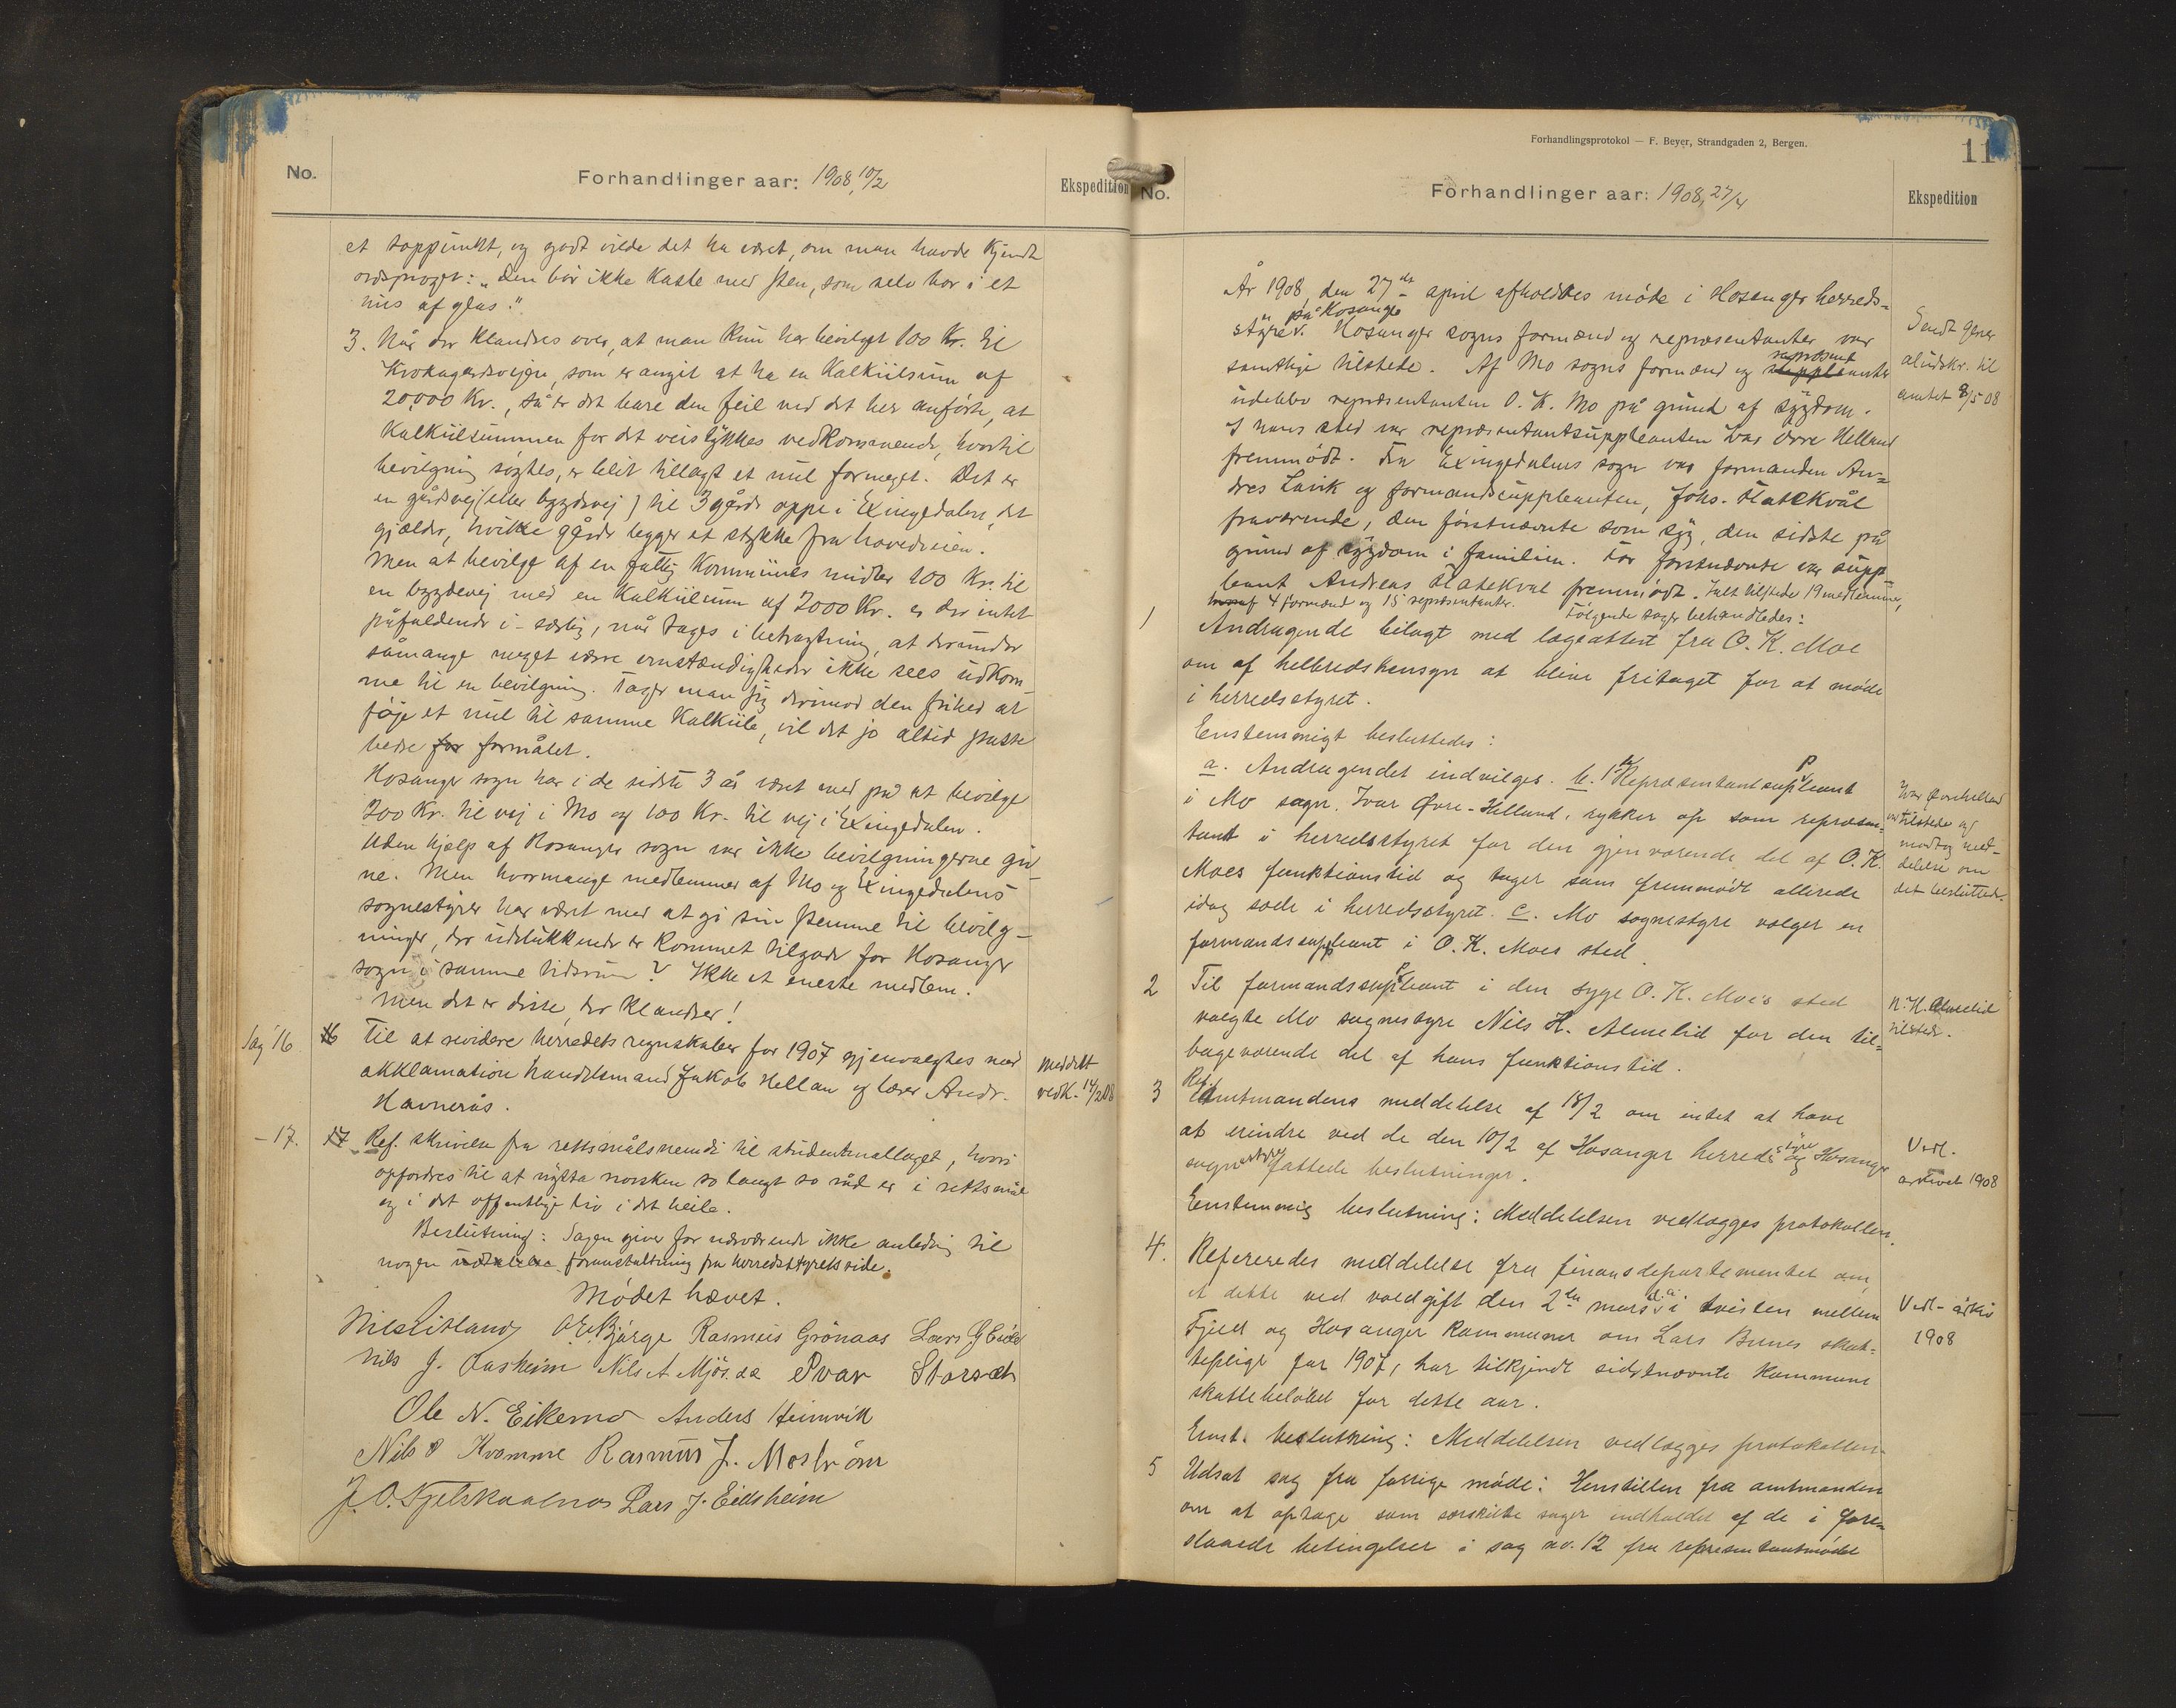 No.
Forhandlinger aar: 1908, 10/2
Ekspedition
et toppunkt, og godt vilde det ha været, om man havde kjendt
ordsproget: "Den bør ikke kaste med sten, som selv bor i et
hus af glas."
3. Når der klandres over, at man kun har bevilget 100 Kr. til
Krokagardsvejen, som er angit at ha en Kalkulsum af
20,000 Kr., så er det bare den feil ved det her anførte, at
Kalkulsummen for det veistykkes vedkommende, hvortil
bevilgning søgtes, er blit tillagt et nul formeget. Det er
en gårdsvej (eller bygdevej) til 3 gårde oppe i Exingedalen, det
gjælder, hvilke gårde ligger et stykke fra hovedveien.
Men at bevilge af en fattig Kommunes midler 100 Kr. til
en bygdevej med en Kalkulsum af 2000 Kr. er der intet
påfaldende i – særlig, når tages i betragtning, at derunder
såmange meget værre omstændigheder ikke sees udkom-
me til en bevilgning. Tager man sig derimod den frihed at
føje et nul til samme Kalkule, vil det jo altid passe
bedre for formålet.
Hosanger sogn har i de sidste 3 år været med på at bevilge
200 Kr. til vej i Mo og 100 Kr. til vej i Exingedalen.
Uden hjælp af Hosanger sogn var ikke bevilgningerne gåv-
ne. Men hvormange medlemmer af Mo og Exingedalens
sognestyrer har været med at gi sin stemme til bevilg-
ninger, der udelukkende er kommet tilgode for Hosanger
sogn i samme tidsrum? Ikke et eneste medlem.
Men det er disse, der klandrer!
Sag 16 16 Til at revidere herredets regnskaber for 1907 gjenvalgtes med
akklamation handelsmand Jakob Hellan og lærer Andr.
Havnerås.
Meddelt
vedk. 14/2 08
– 17. 17 Ref. skrivelse fra rettsmålsnemdi til studentmallaget, hvori
opfordres til at nytta norsken so langt so råd er i rettsmål
og i det offentlige liv i det heile.
Beslutning: Sagen giver for nærværende ikke anledning til
nogen foranstaltning fra herredsstyrets side.
Mødet hævet.
Nils Litland O. E. Bjørge Rasmus Grønaas Lars G Eide
Nils J. Aasheim Nils A Mjøs. da Ivar Storset
Ole N. Eikemo Anders Heimvik
Nils O Kvamme Rasmus J. Mostrøm
J. O. Tjelskaalnes Lars J. Eidsheim
Forhandlingsprotokol — F. Beyer, Strandgaden 2, Bergen.
11
No.
Forhandlinger aar: 1908, 27/4
Ekspedition
År 1908, den 27de april afholdtes møde i Hosanger herreds-
på Hosanger
styre. Hosanger sogns formænd og repræsentanter var
samtlige tilstede. Af Mo sogns formænd og repræsentanter
udeblev repræsentanten O. K. Mo på grund af sygdom.
I hans sted var repræsentantsuppleanten Ivar Øvre Helland
fremmødt. Fra Exingedalens sogn var formanden An-
dres Lavik og formandssuppleanten, Johs. Flatekvål
fraværende, den førstnævnte som syg, den sidste på
grund af sygdom i familien. For førstnævnte var supp-
leant Andreas Flatekval fremmødt. Ialt tilstede 19 medlemmer,
hvoraf 4 formænd og 15 repræsentanter. Følgende sager behandledes:
Sendt gener
aludskr. til
amtet 8/5 08
1 Andragende bilagt med lægeattest fra O. K. Moe
om af helbredshensyn at blive fritaget for at møde
i herredsstyret.
Enstemmigt besluttedes:
a. Andragendet indvilges. b. 1ste Repræsentantsuppleant
i Mo sogn, Ivar Øvre-Helland, rykker op som repræsen-
tant i herredsstyret for den gjenværende del af O. K.
Moes funktionstid og tager som fremmødt allerede
idag sæde i herredsstyret. c. Mo sognestyre vælger en
formandssuppleant i O. K. Moes sted.
Ivar Øvrehelland
var tilstede og
modtog med-
delelse om
det besluttede.
2 Til formandssuppleant i den syge O. K. Moes sted
valgte Mo sognestyre Nils H. Almelid for den til-
bageværende del af hans funktionstid.
N. H. Almelid
tilstede.
3 Ref. Amtmandens meddelelse af 18/2 om intet at have
at erindre ved de den 10/2 af Hosanger herredsstyre og Hosanger
sognestyre fattede beslutninger.
Enstemmig beslutning: Meddelelsen vedlægges protokollen.
Vedl.
arkivet 1908
4. Refereredes meddelelse fra finansdepartementet om,
at dette ved voldgift den 2den mars d.a. i tvisten mellem
Fjeld og Hosanger kommuner om Lars Bunes skat-
tepligt for 1907, har tilkjendt sidstnævnte kommune
skattebeløbet for dette aar.
Enst. beslutning: Meddelelsen vedlægges protokollen.
Vedl. arkiv
1908
5 Udsat sag fra forrige møde: Henstillen fra amtmanden
om at optage som særskilte sager indholdet af de i fore-
slaaede betingelser i sag no. 12 fra repræsentantmødet